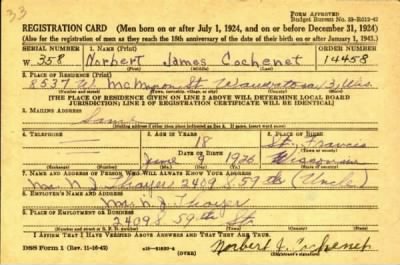 33
FORM APPROVED
Budget Bureau No. 33-R013-42
REGISTRATION CARD—(Men born on or after July 1, 1924, and on or before December 31, 1924)
(Also for the registration of men as they reach the 18th anniversary of the date of their birth on or after January 1, 1943.)
SERIAL NUMBER 1. NAME (Print) ORDER NUMBER
W 358 Norbert James Cochenet 14458
(First) (Middle) (Last)
2. PLACE OF RESIDENCE (Print)
8537 W. St. Wauwatosa 13, Wis.
(Number and street) (Town, township, village, or city) (County) (State)
[THE PLACE OF RESIDENCE GIVEN ON LINE 2 ABOVE WILL DETERMINE LOCAL BOARD
JURISDICTION; LINE 2 OF REGISTRATION CERTIFICATE WILL BE IDENTICAL]
3. MAILING ADDRESS
Same
[Mailing address if other than place indicated on line 2. If same, insert word same]
4. TELEPHONE 5. AGE IN YEARS 6. PLACE OF BIRTH
18 St. Francis
DATE OF BIRTH (Town or county)
June 9 1926 Wisconsin
(Exchange) (Number) (Mo.) (Day) (Yr.) (State or country)
7. NAME AND ADDRESS OF PERSON WHO WILL ALWAYS KNOW YOUR ADDRESS
N. J. Thayer 2409 S 59th (Uncle)
8. EMPLOYER'S NAME AND ADDRESS
N. J. Thayer
9. PLACE OF EMPLOYMENT OR BUSINESS
2409 S 59th St.
(Number and street or R. F. D. number) (Town) (County) (State)
I AFFIRM THAT I HAVE VERIFIED ABOVE ANSWERS AND THAT THEY ARE TRUE.
DSS Form 1 (Rev. 11-16-42) (OVER) Norbert J. Cochenet